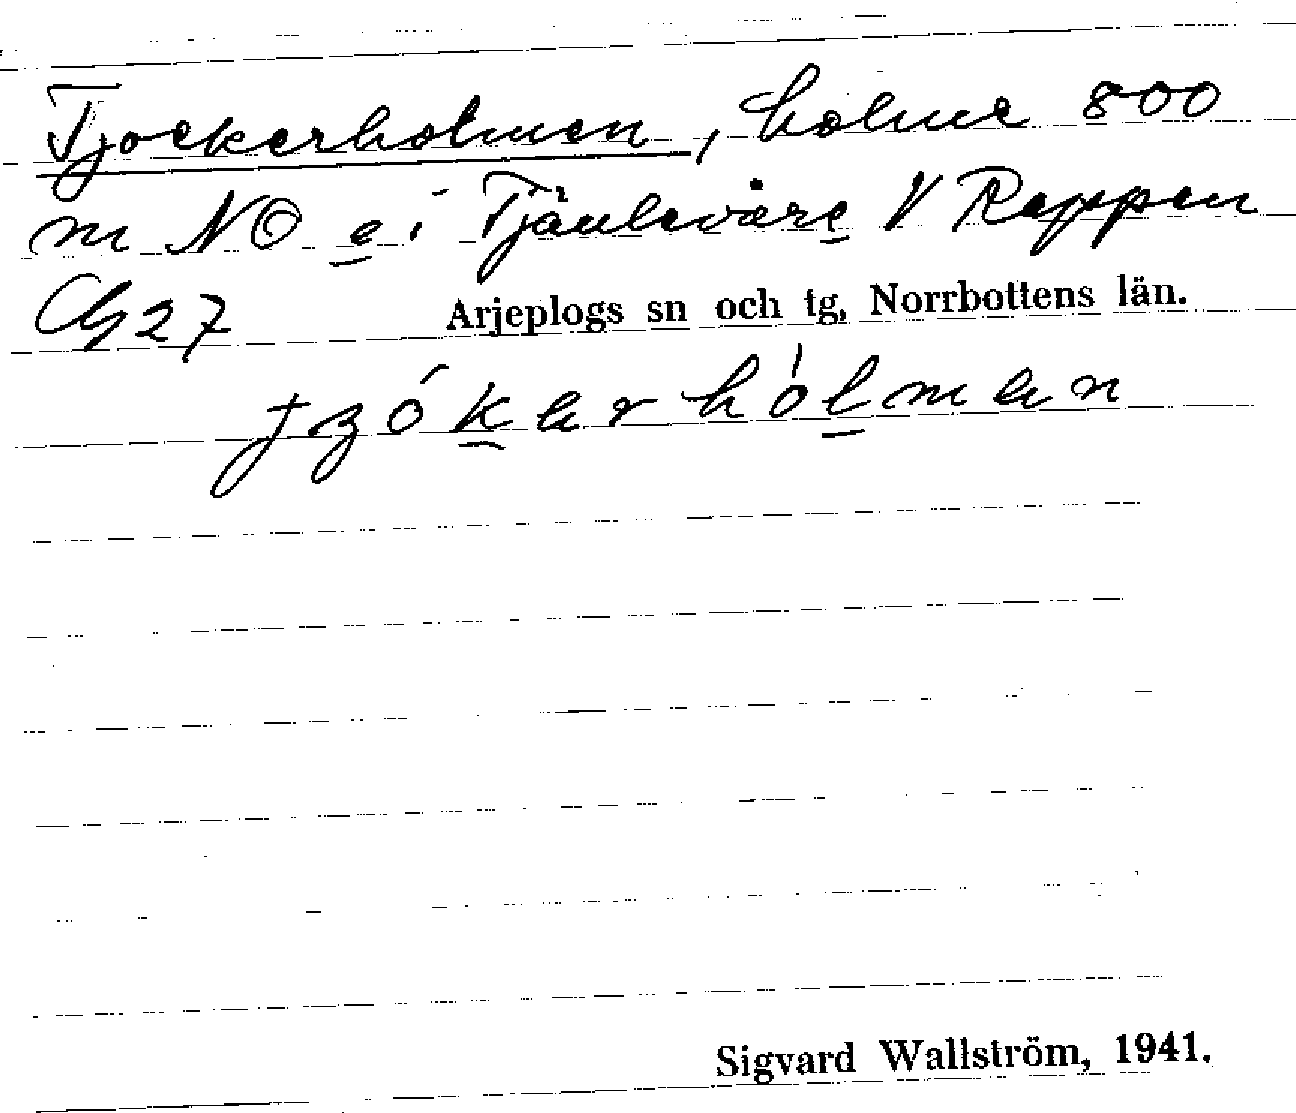 Tjockerholmen, holme 800
m NO e i Tjäulevare V Rappen
Cg 27 Arjeplogs sn och tg, Norrbottens län.
tʒókerhólmen
Sigvard Wallström, 1941.